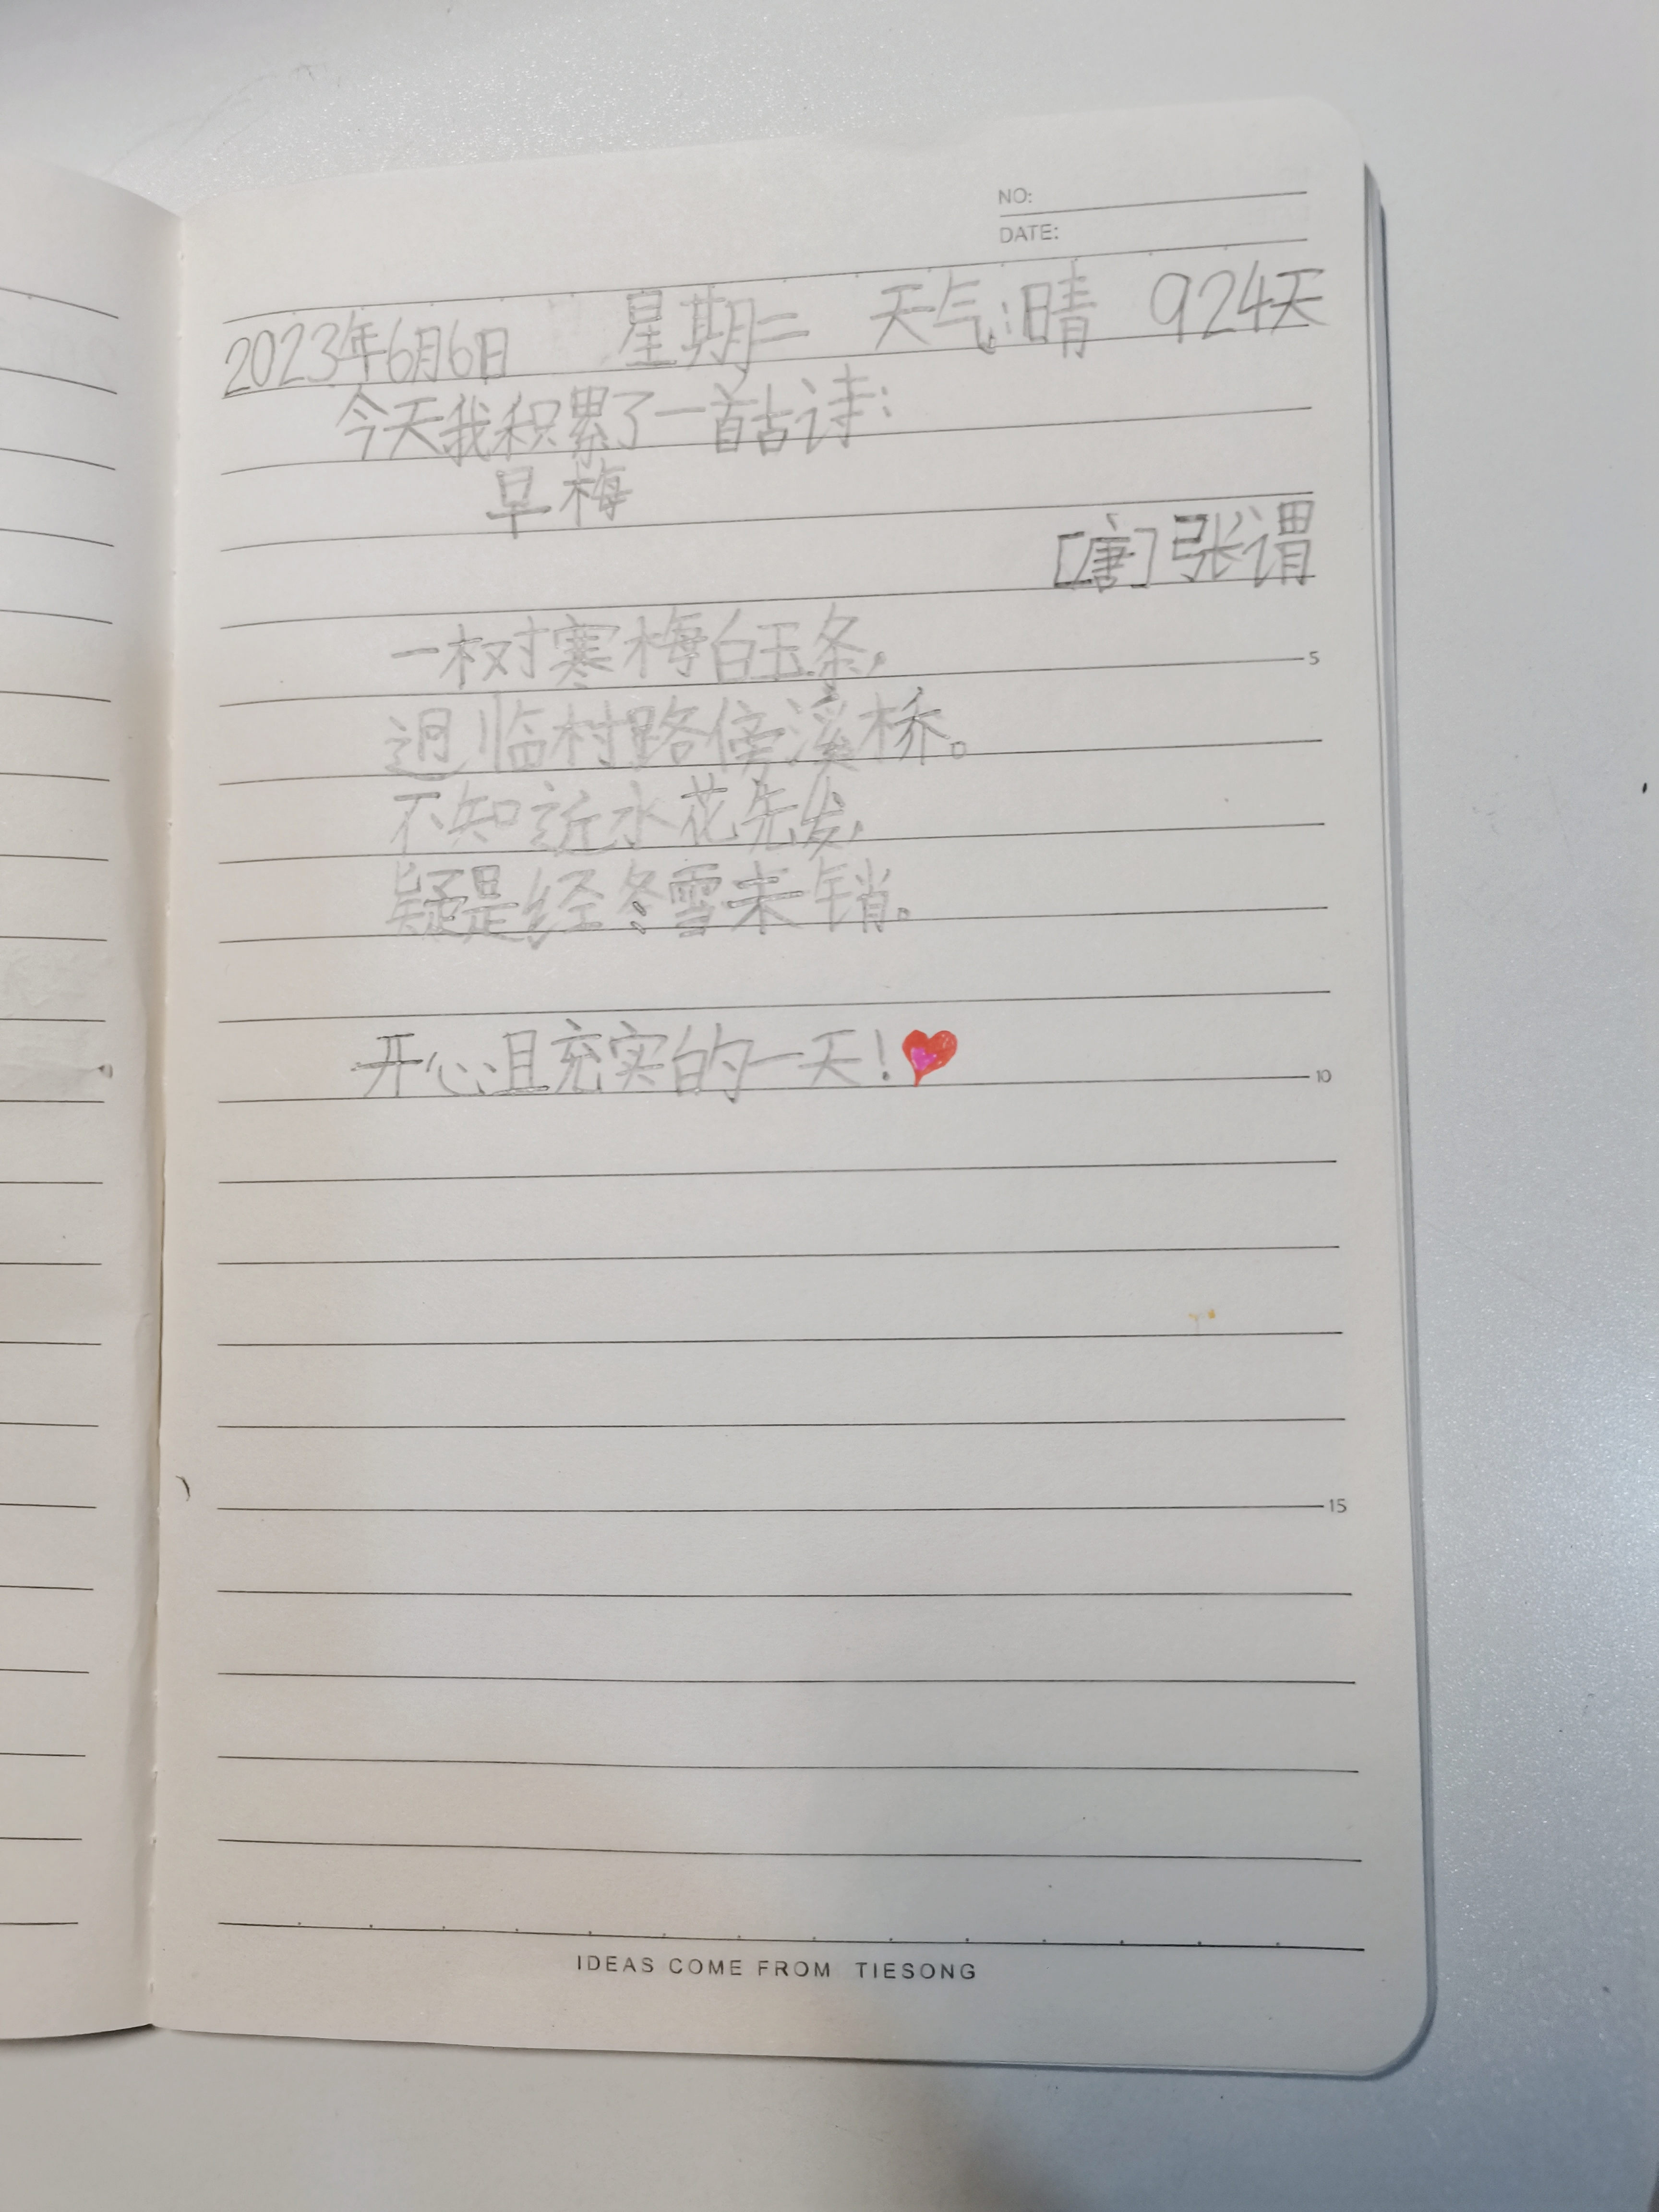 NO:
DATE:
2023年6月6日 星期二 天气:晴 924天
今天我积累了一首古诗:
早梅
[唐]张谓
一树寒梅白玉条,
迥临村路傍溪桥。
不知近水花先发,
疑是经冬雪未销。
5
开心且充实的一天!
10
15
IDEAS COME FROM TIESONG